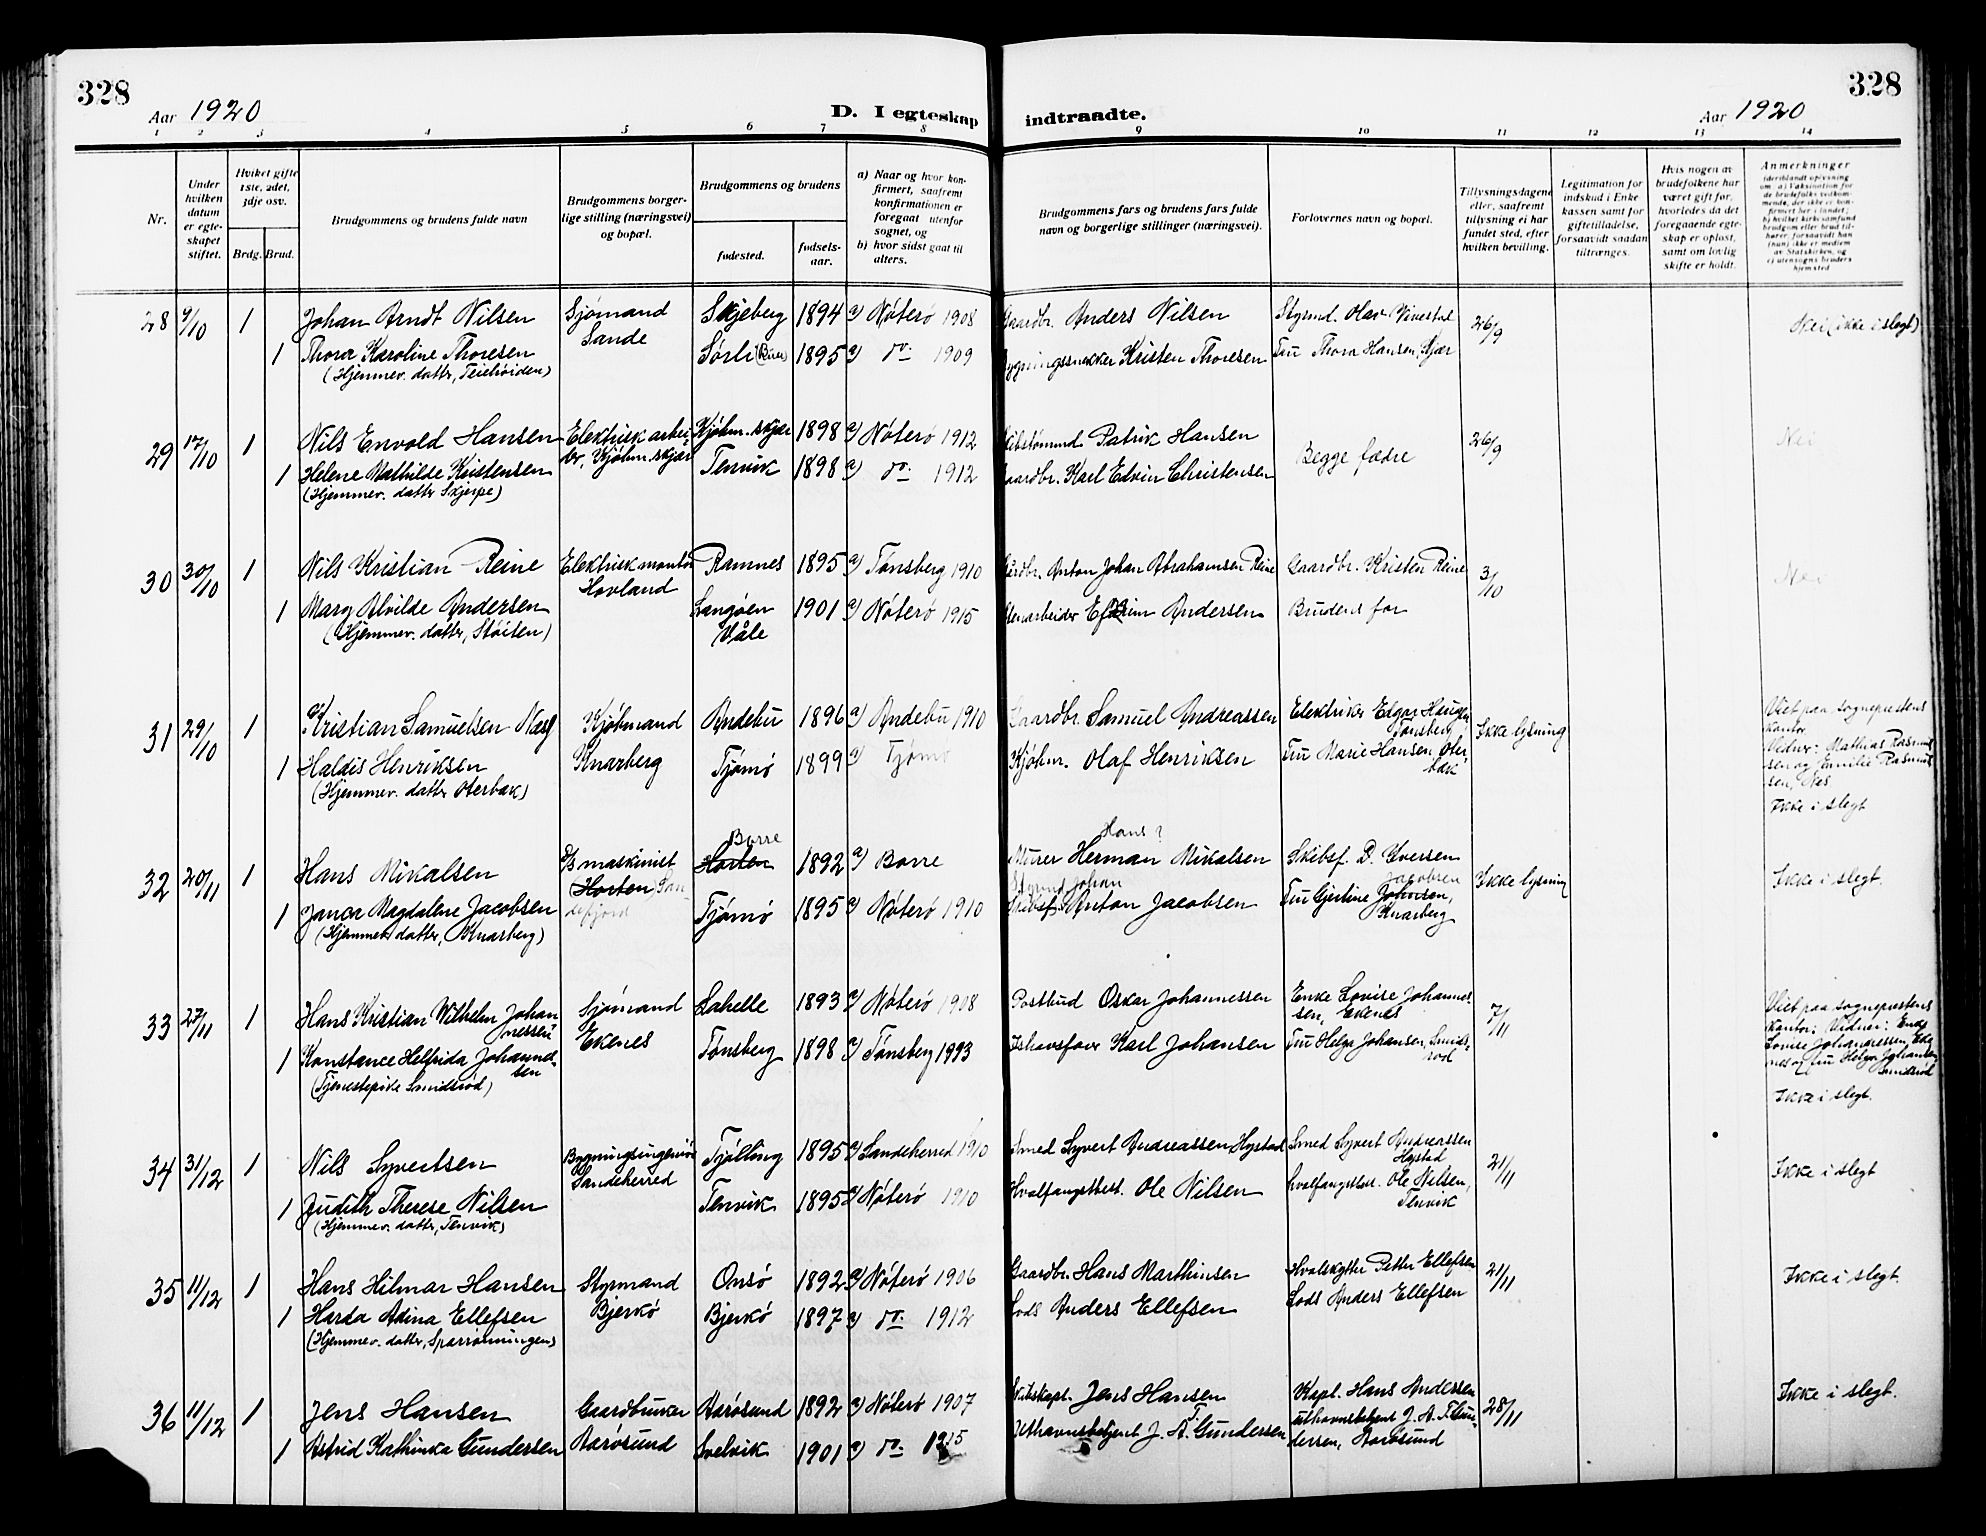 328
Aar 1920
D. I egteskap indtraadte.
Aar 1920
328
1 2 3 4 5 6 7 8 9 10 11 12 13 14
Nr.
Under hvilken datum er egteskapet stiftet.
Hvilket gifte 1ste, 2det, 3dje osv.
Brdg. Brud.
Brudgommens og brudens fulde navn
Brudgommens borgerlige stilling (næringsvei) og bopæl.
Brudgommens og brudens
fødested.
fødselsaar.
a) Naar og hvor konfirmert, saafremt konfirmationen er foregaat utenfor sognet, og
b) hvor sidst gaat til alters.
Brudgommens fars og brudens fars fulde navn og borgerlige stillinger (næringsvei).
Forlovernes navn og bopæl.
Tillysningsdagene eller, saafremt tillysning ei har fundet sted, efter hvilken bevilling.
Legitimation for indskud i Enkekassen samt for giftetilladelse, forsaavidt saadan tiltrænges.
Hvis nogen av brudefolkene har været gift før, hvorledes da det foregaaende egteskap er opløst, samt om lovlig skifte er holdt.
Anmerkninger
28 9/10 1 Johan Arndt Nilsen Sjømand Sande Skjeberg 1894 a) Nøterø 1908 Gaardbr. Anders Nilsen Styrmd. Olav Vivestad 26/9 Nei (ikke i slegt)
1 Thora Karoline Thoresen Sørli 1895 a) do. 1909 Bygningssnekker Kristen Thoresen Fru Thora Hansen, Skjær
(Hjemmev. datter, Teiehøiden)
29 17/10 1 Nils Envold Hansen Elektrisk arbeider, Kjøbm.skjær Kjøbm.skjær 1898 a) Nøterø 1912 Skibstømmd. Patrik Hansen Begge fædre 26/9 Nei
1 Helene Mathilde Kristensen Tenvik 1898 a) do. 1912 Gaardbr. Karl Edvin Christensen
(Hjemmev. datter Skjerpe)
30 30/10 1 Nils Kristian Reine Elektriskmontør Hovland Ramnes 1895 a) Tønsberg 1910 Gardbr. Anton Johan Abrahamsen Reine Gaardbr. Kristen Reine 3/10 Nei
1 Mary Alvilde Andersen Langøen Våle 1901 a) Nøterø 1915 Stenarbeider Efraim Andersen Brudens far
(Hjemmev. datter, Støiten)
31 29/10 1 Kristian Samuelsen Næss Kjøbmand Knarberg Andebu 1896 a) Andebu 1910 Gaardbr. Samuel Andreassen Elektriker Edgar Haugen Tønsberg Ikke lysning Viet paa sogneprestens kontor
Vidner: Mathias Rasmussen og Emilie Rasmussen, Nes.
Ikke i slegt
1 Haldis Henriksen Tjømø 1899 a) Tjømø Kjøbm. Olaf Henriksen Fru Marie Hansen, Oterbæk
(Hjemmev. datter Oterbæk)
32 20/11 1 Hans Mikalsen maskinist Horten Sandefjord Horten Borre 1892 a) Borre Murer Herman Mikalsen Hans? Skibsf. D. Iversen Ikke lysning Ikke i slegt.
1 Janca Magdalene Jacobsen Tjømø 1895 a) Nøterø 1910 Skibsf. Anton Jacobsen Styrmd Johan Fru Gjertine Johnsen, Jacobsen Knarberg
(Hjemmev. datter, Knarberg)
33 27/11 1 Hans Kristian Wilhelm Johannessen Sjømand Ekenes Lahelle 1893 a) Nøterø 1908 Postbud Oskar Johannessen Enke Lovise Johannessen, Ekenes 7/11 Viet paa sogneprestens kontor: Vidner: Enke Lovise Johannessen, Ekenes og fru Helga Johansen Smidsrød
Ikke i slegt.
1 Konstance Helfrida Johansen Tønsberg 1898 a) Tønsberg 1913 Ishavsfarer Karl Johansen Fru Helga Johansen, Smidsrød
(Tjenestepike Smidsrød)
34 31/12 1 Nils Syvertsen Bygningsingeniør Sandeherred Tjølling 1895 a) Sandeherred 1910 Smed Syvert Andreassen Hystad Smed Syvert Andreassen Hystad 21/11 Ikke i slegt
1 Judith Therese Nilsen Tenvik 1895 a) Nøterø 1910 Hvalfangstbest. Ole Nilsen Hvalfangstbest. Ole Nilsen, Tenvik
(Hjemmev. datter, Tenvik)
35 11/12 1 Hans Hilmar Hansen Styrmand Bjerkø Onsø 1892 a) Nøterø 1906 Gaardbr. Hans Marthinsen Hvalskytter Petter Ellefsen 21/11 Ikke i slegt.
1 Harda Adina Ellefsen Bjerkø 1897 a) do. 1912 Lods Anders Ellefsen Lods Anders Ellefsen
(Hjemmev. datter, Sparrønningen)
36 11/12 1 Jens Hansen Gaardbruker Aarøsund Aarøsund 1892 a) Nøterø 1907 Skibskapt. Jens Hansen Kapt. Hans Andersen 28/11 Ikke i slegt.
1 Astrid Kathinka Gundersen Svelvik 1901 a) do. 1915 Uthavnsbetjent J. A. T. Gundersen Uthavnsbetjent J. A. T. Gundersen, Aarøsund